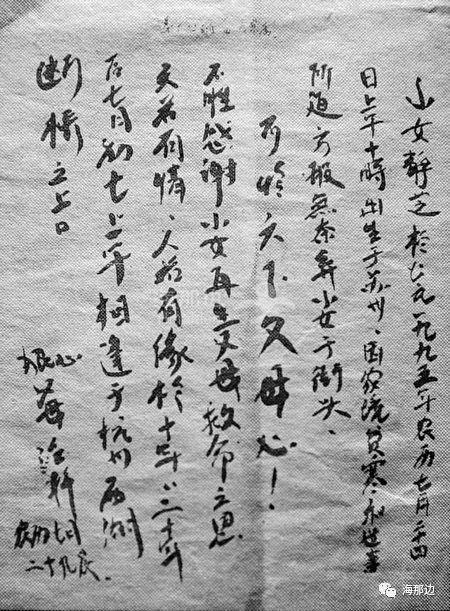 小女靜芝於公元一九九五年农历七月二十四
日上午十時出生于苏州、因家境贫寒和世事
所迫万般無奈弃小女于街头、
可怜天下父母心!
不胜感谢小女再生父母救命之恩
天若有情、人若有缘於十年、二十年
后七月初七上午相逢于杭州西湖
断桥之上
狠心爹
农历七月
二十九晨.
海那边